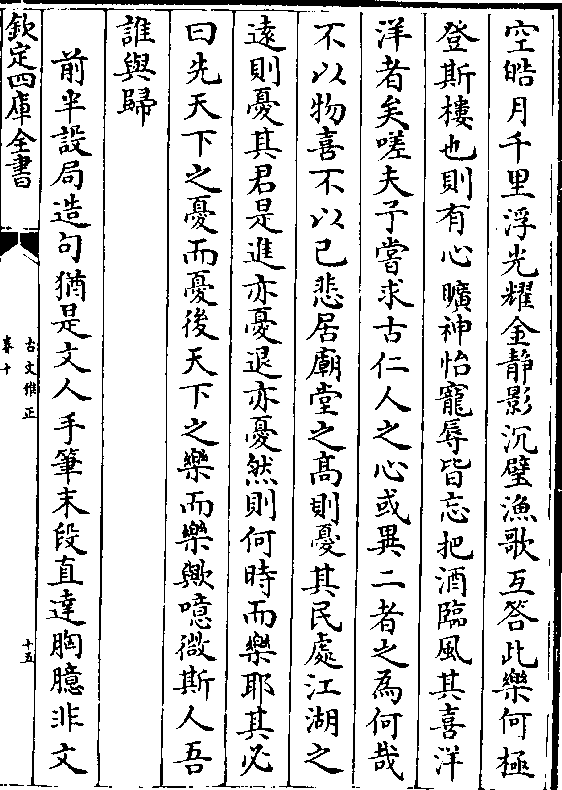 空皓月千里浮光耀金静影沉璧漁歌互答此樂何極
登斯樓也則有心曠神怡寵辱皆忘把酒臨風其喜洋
洋者矣嗟夫予嘗求古仁人之心或異二者之為何哉
不以物喜不以己悲居廟堂之髙則憂其民處江湖之
逺則憂其君是進亦憂退亦憂然則何時而樂耶其必
曰先天下之憂而憂後天下之樂而樂歟噫微斯人吾
誰與歸
前半設局造句猶是文人手筆末段直達胸臆非文
欽定四庫全書
古文雅正
卷十
十五